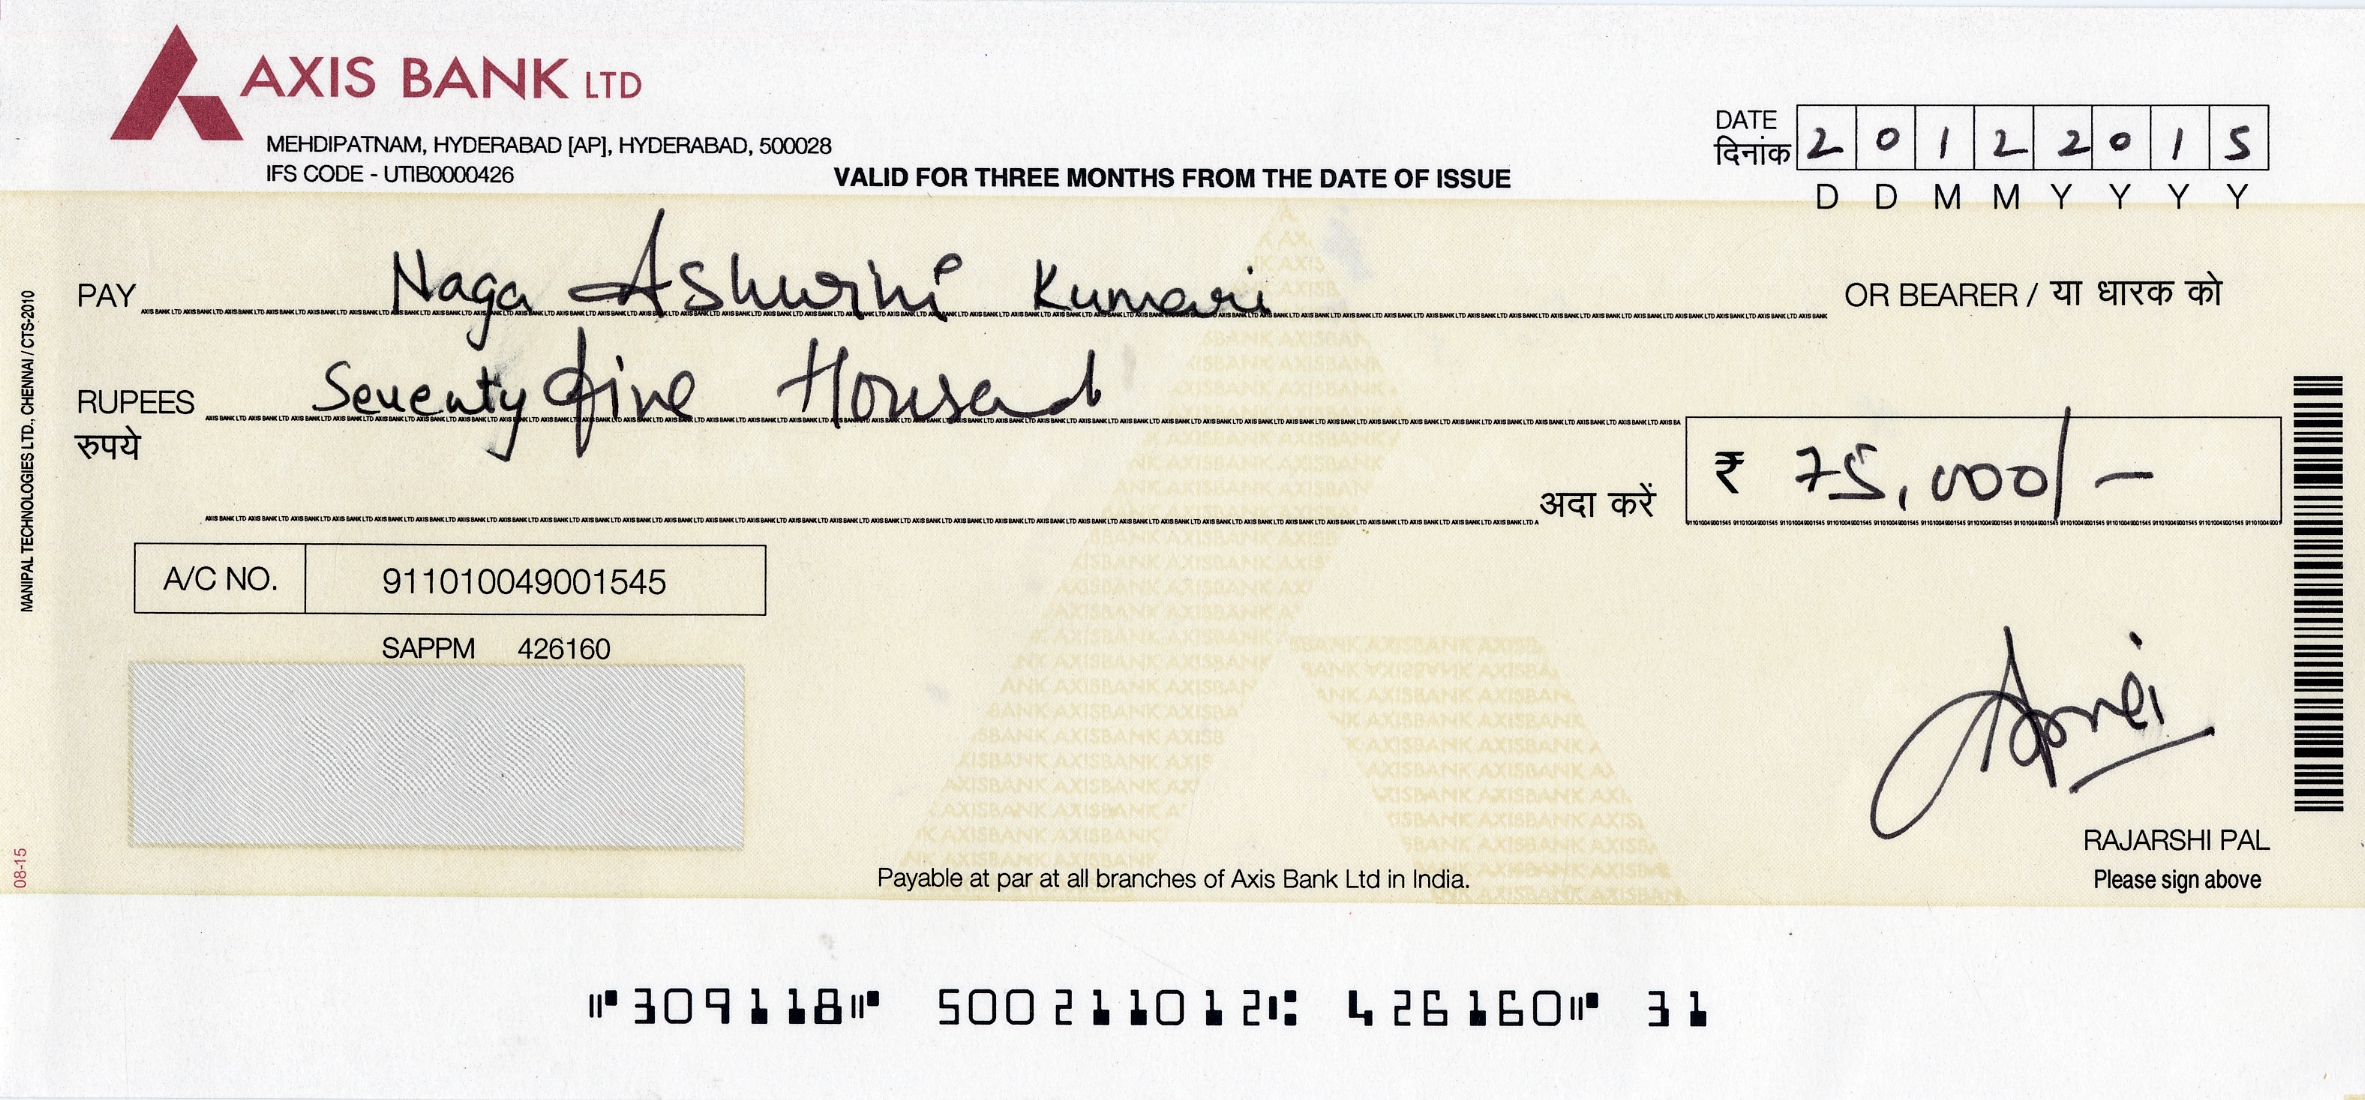 AXIS BANK LTD
MEHDIPATNAM, HYDERABAD [AP], HYDERABAD, 500028
IFS CODE - UTIB0000426
VALID FOR THREE MONTHS FROM THE DATE OF ISSUE
DATE
दिनांक 2 0 1 2 2 0 1 5
D D M M Y Y Y Y
PAY Naga Ashwini Kumari OR BEARER / या धारक को
RUPEES Seventy five Thousand
रुपये
अदा करें ₹ 75,000/-
A/C NO. 911010049001545
SAPPM 426160
VOID
RAJARSHI PAL
Please sign above
Payable at par at all branches of Axis Bank Ltd in India.
MANIPAL TECHNOLOGIES LTD., CHENNAI / CTS-2010
08-15
⑈309118⑈ 500211012⑆ 426160⑈ 31